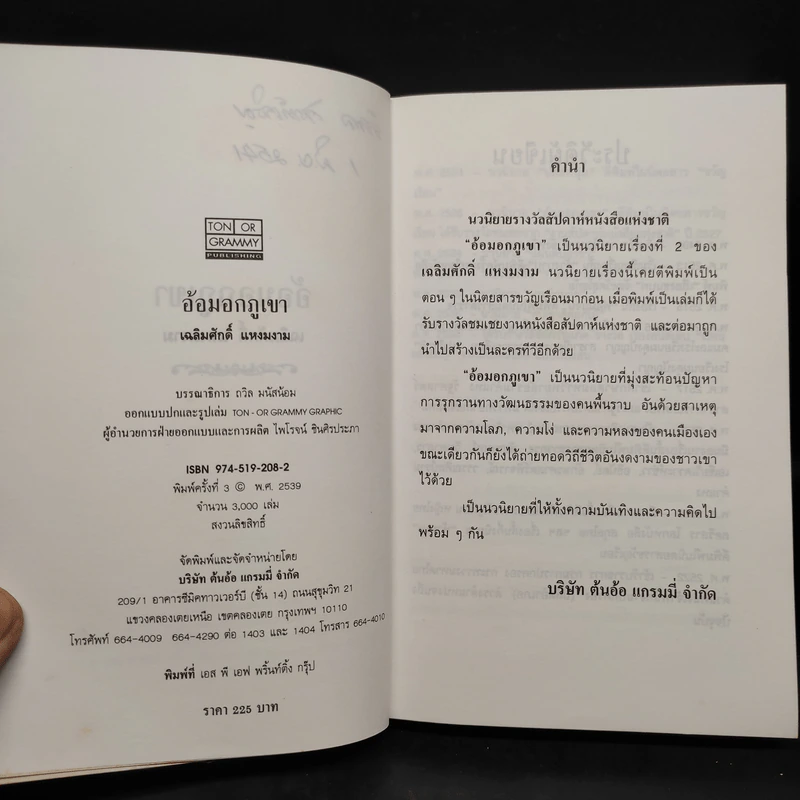 1 มิย 2541
TON OR
GRAMMY
PUBLISHING
อ้อมอกภูเขา
เฉลิมศักดิ์ แหงมงาม
บรรณาธิการ ถวิล มนัสน้อม
ออกแบบปกและรูปเล่ม TON - OR GRAMMY GRAPHIC
ผู้อำนวยการฝ่ายออกแบบและการผลิต ไพโรจน์ ชินศิรประภา
ISBN 974-519-208-2
พิมพ์ครั้งที่ 3 © พ.ศ. 2539
จำนวน 3,000 เล่ม
สงวนลิขสิทธิ์
จัดพิมพ์และจัดจำหน่ายโดย
บริษัท ต้นอ้อ แกรมมี่ จำกัด
209/1 อาคารซีมิคทาวเวอร์บี (ชั้น 14) ถนนสุขุมวิท 21
แขวงคลองเตยเหนือ เขตคลองเตย กรุงเทพฯ 10110
โทรศัพท์ 664-4009 664-4290 ต่อ 1403 และ 1404 โทรสาร 664-4010
พิมพ์ที่ เอส พี เอฟ พริ้นท์ติ้ง กรุ๊ป
ราคา 225 บาท
คำนำ
นวนิยายรางวัลสัปดาห์หนังสือแห่งชาติ
"อ้อมอกภูเขา" เป็นนวนิยายเรื่องที่ 2 ของ
เฉลิมศักดิ์ แหงมงาม นวนิยายเรื่องนี้เคยตีพิมพ์เป็น
ตอน ๆ ในนิตยสารขวัญเรือนมาก่อน เมื่อพิมพ์เป็นเล่มก็ได้
รับรางวัลชมเชยงานหนังสือสัปดาห์แห่งชาติ และต่อมาถูก
นำไปสร้างเป็นละครทีวีอีกด้วย
"อ้อมอกภูเขา" เป็นนวนิยายที่มุ่งสะท้อนปัญหา
การรุกรานทางวัฒนธรรมของคนพื้นราบ อันด้วยสาเหตุ
มาจากความโลภ, ความโง่ และความหลงของคนเมืองเอง
ขณะเดียวกันก็ยังได้ถ่ายทอดวิถีชีวิตอันงดงามของชาวเขา
ไว้ด้วย
เป็นนวนิยายที่ให้ทั้งความบันเทิงและความคิดไป
พร้อม ๆ กัน
บริษัท ต้นอ้อ แกรมมี่ จำกัด